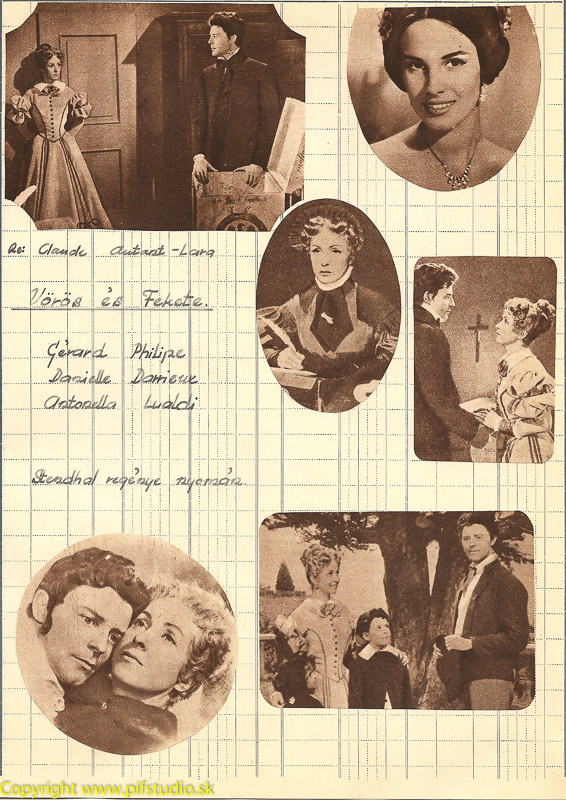 Re: Claude Autant-Lara
Vörös és Fekete.
Gérard Philipe
Danielle Darrieux
Antonella Lualdi
Stendhal regénye nyomán.
Copyright www.pifstudio.sk